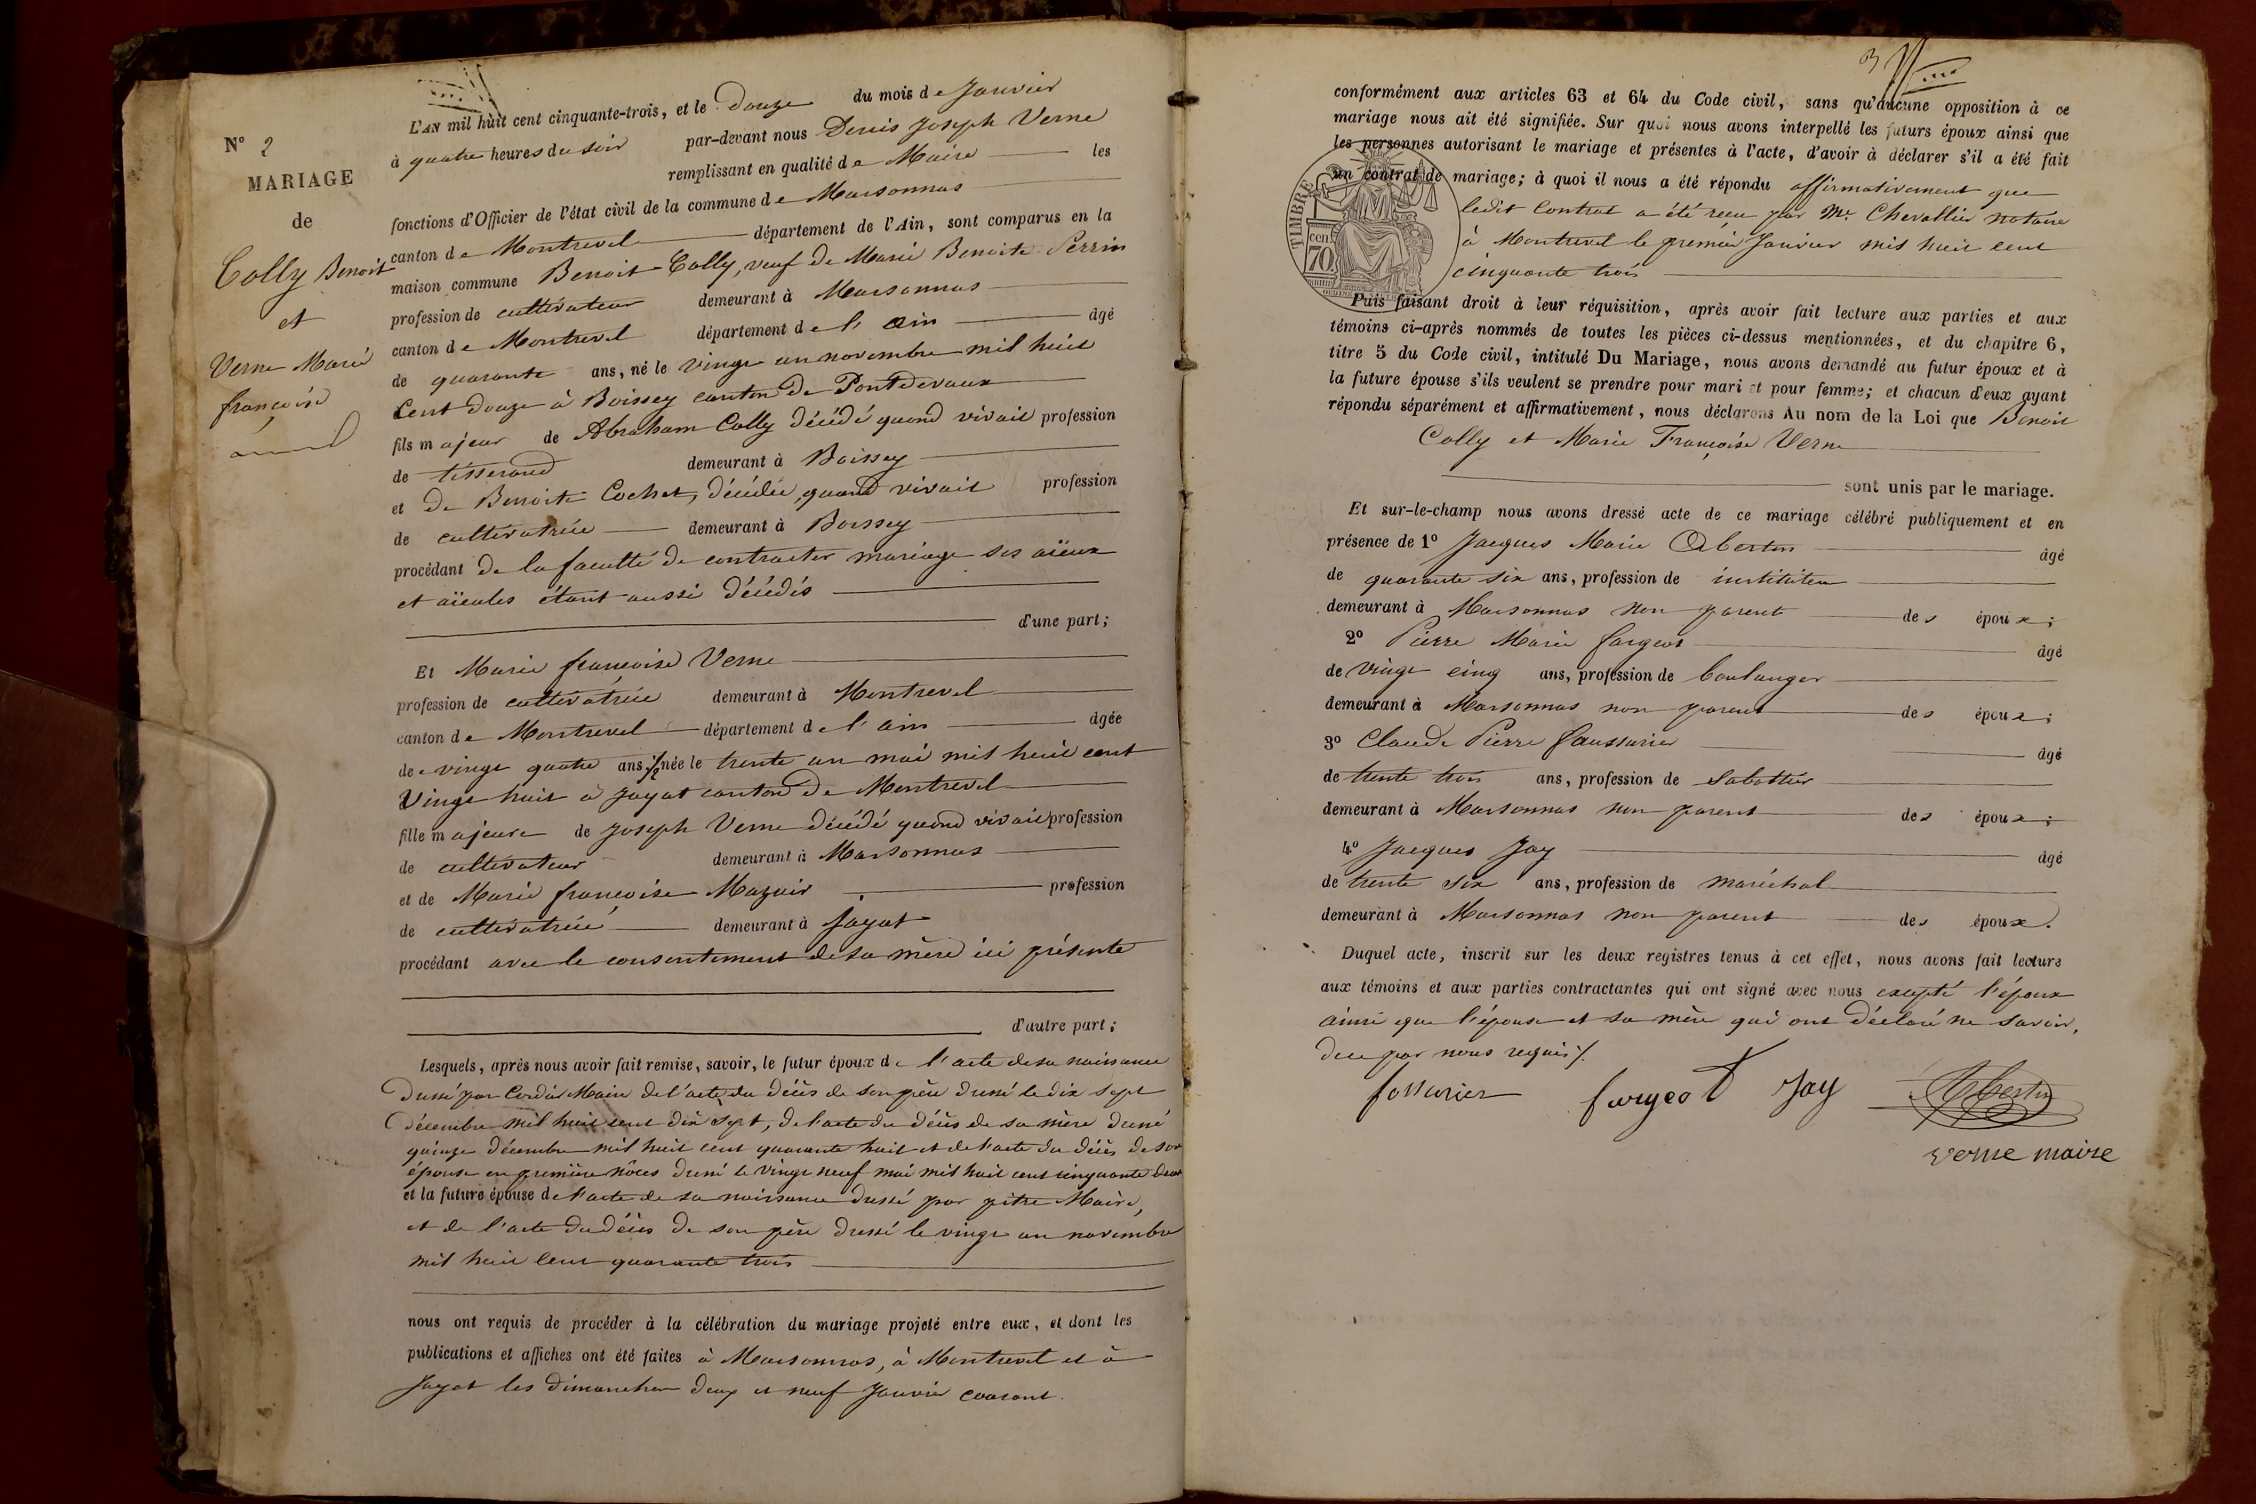 N° 2
MARIAGE
de
Colly Benoit
et
Verne Marie
françoise
L'AN mil huit cent cinquante-trois, et le douze du mois de Janvier
à quatre heures du soir par-devant nous Denis Joseph Verne
remplissant en qualité de Maire les
fonctions d'Officier de l'état civil de la commune de Marsonnas
canton de Montrevel département de l'Ain, sont comparus en la
maison commune Benoit Colly, veuf de Marie Benoite Perrin
profession de cultivateur demeurant à Marsonnas
canton de Montrevel département de l'ain âgé
de quarante ans, né le vingt un novembre mil huit
Cent douze à Boissey canton de Pontdevaux
fils majeur de Abraham Colly décédé quand vivait profession
de tisserand demeurant à Boissey
et de Benoite Cochet, décédée, quand vivait profession
de cultivatrice demeurant à Boissey
procédant de la faculté de contracter mariage ses aïeux
et aïeules étant aussi décédés
d'une part;
Et Marie françoise Verne
profession de cultivatrice demeurant à Montrevel
canton de Montrevel département de l'ain âgée
de vingt quatre ans ½ née le trente un mai mil huit cent
Vingt huit à Jayat canton de Montrevel
fille majeure de Joseph Verne décédé quand vivait profession
de cultivateur demeurant à Marsonnas
et de Marie françoise Mazuir profession
de cultivatrice demeurant à Jayat
procédant avec le consentement de sa mère ici présente
d'autre part;
Lesquels, après nous avoir fait remise, savoir, le futur époux de l'acte de sa naissance
dressé par Cordier Maire de l'acte du décès de son père dressé le dix sept
décembre mil huit cent dix sept, de l'acte du décès de sa mère dressé
quinze décembre mil huit cent quarante huit et de l'acte du décès de son
épouse en première nôces dressé le vingt neuf mai mil huit cent cinquante deux
et la future épouse de l'acte de sa naissance dressé par pitre Maire,
et de l'acte du décès de son père dressé le vingt un novembre
mil huit cent quarante trois
nous ont requis de procéder à la célébration du mariage projeté entre eux, et dont les
publications et affiches ont été faites à Marsonnas, à Montrevel et à
Jayat les dimanches deux et neuf Janvier courant.
3
conformément aux articles 63 et 64 du Code civil, sans qu'aucune opposition à ce
mariage nous ait été signifiée. Sur quoi nous avons interpellé les futurs époux ainsi que
les personnes autorisant le mariage et présentes à l'acte, d'avoir à déclarer s'il a été fait
un contrat de mariage; à quoi il nous a été répondu affirmativement que
ledit Contrat a été reçu par Me. Chevallier notaire
à Montrevel le premier Janvier mil huit cent
cinquante trois
TIMBRE
cen.
70
Puis faisant droit à leur réquisition, après avoir fait lecture aux parties et aux
témoins ci-après nommés de toutes les pièces ci-dessus mentionnées, et du chapitre 6,
titre 5 du Code civil, intitulé Du Mariage, nous avons demandé au futur époux et à
la future épouse s'ils veulent se prendre pour mari et pour femme; et chacun d'eux ayant
répondu séparément et affirmativement, nous déclarons Au nom de la Loi que Benoit
Colly et Marie Françoise Verne
sont unis par le mariage.
Et sur-le-champ nous avons dressé acte de ce mariage célébré publiquement et en
présence de 1° Jacques Marie Albertin âgé
de quarante six ans, profession de instituteur
demeurant à Marsonnas non parent des époux;
2° Pierre Marie fargeot âgé
de vingt cinq ans, profession de boulanger
demeurant à Marsonnas non parent des époux;
3° Claude Pierre faussurier âgé
de trente trois ans, profession de Sabottier
demeurant à Marsonnas non parent des époux;
4° Jacques Jay âgé
de trente six ans, profession de maréchal
demeurant à Marsonnas non parent des époux.
Duquel acte, inscrit sur les deux registres tenus à cet effet, nous avons fait lecture
aux témoins et aux parties contractantes qui ont signé avec nous excepté l'époux
ainsi que l'épouse et sa mère qui ont déclaré ne savoir,
de ce par nous requis ./.
fossurier fargeot Jay Albertin
verne maire